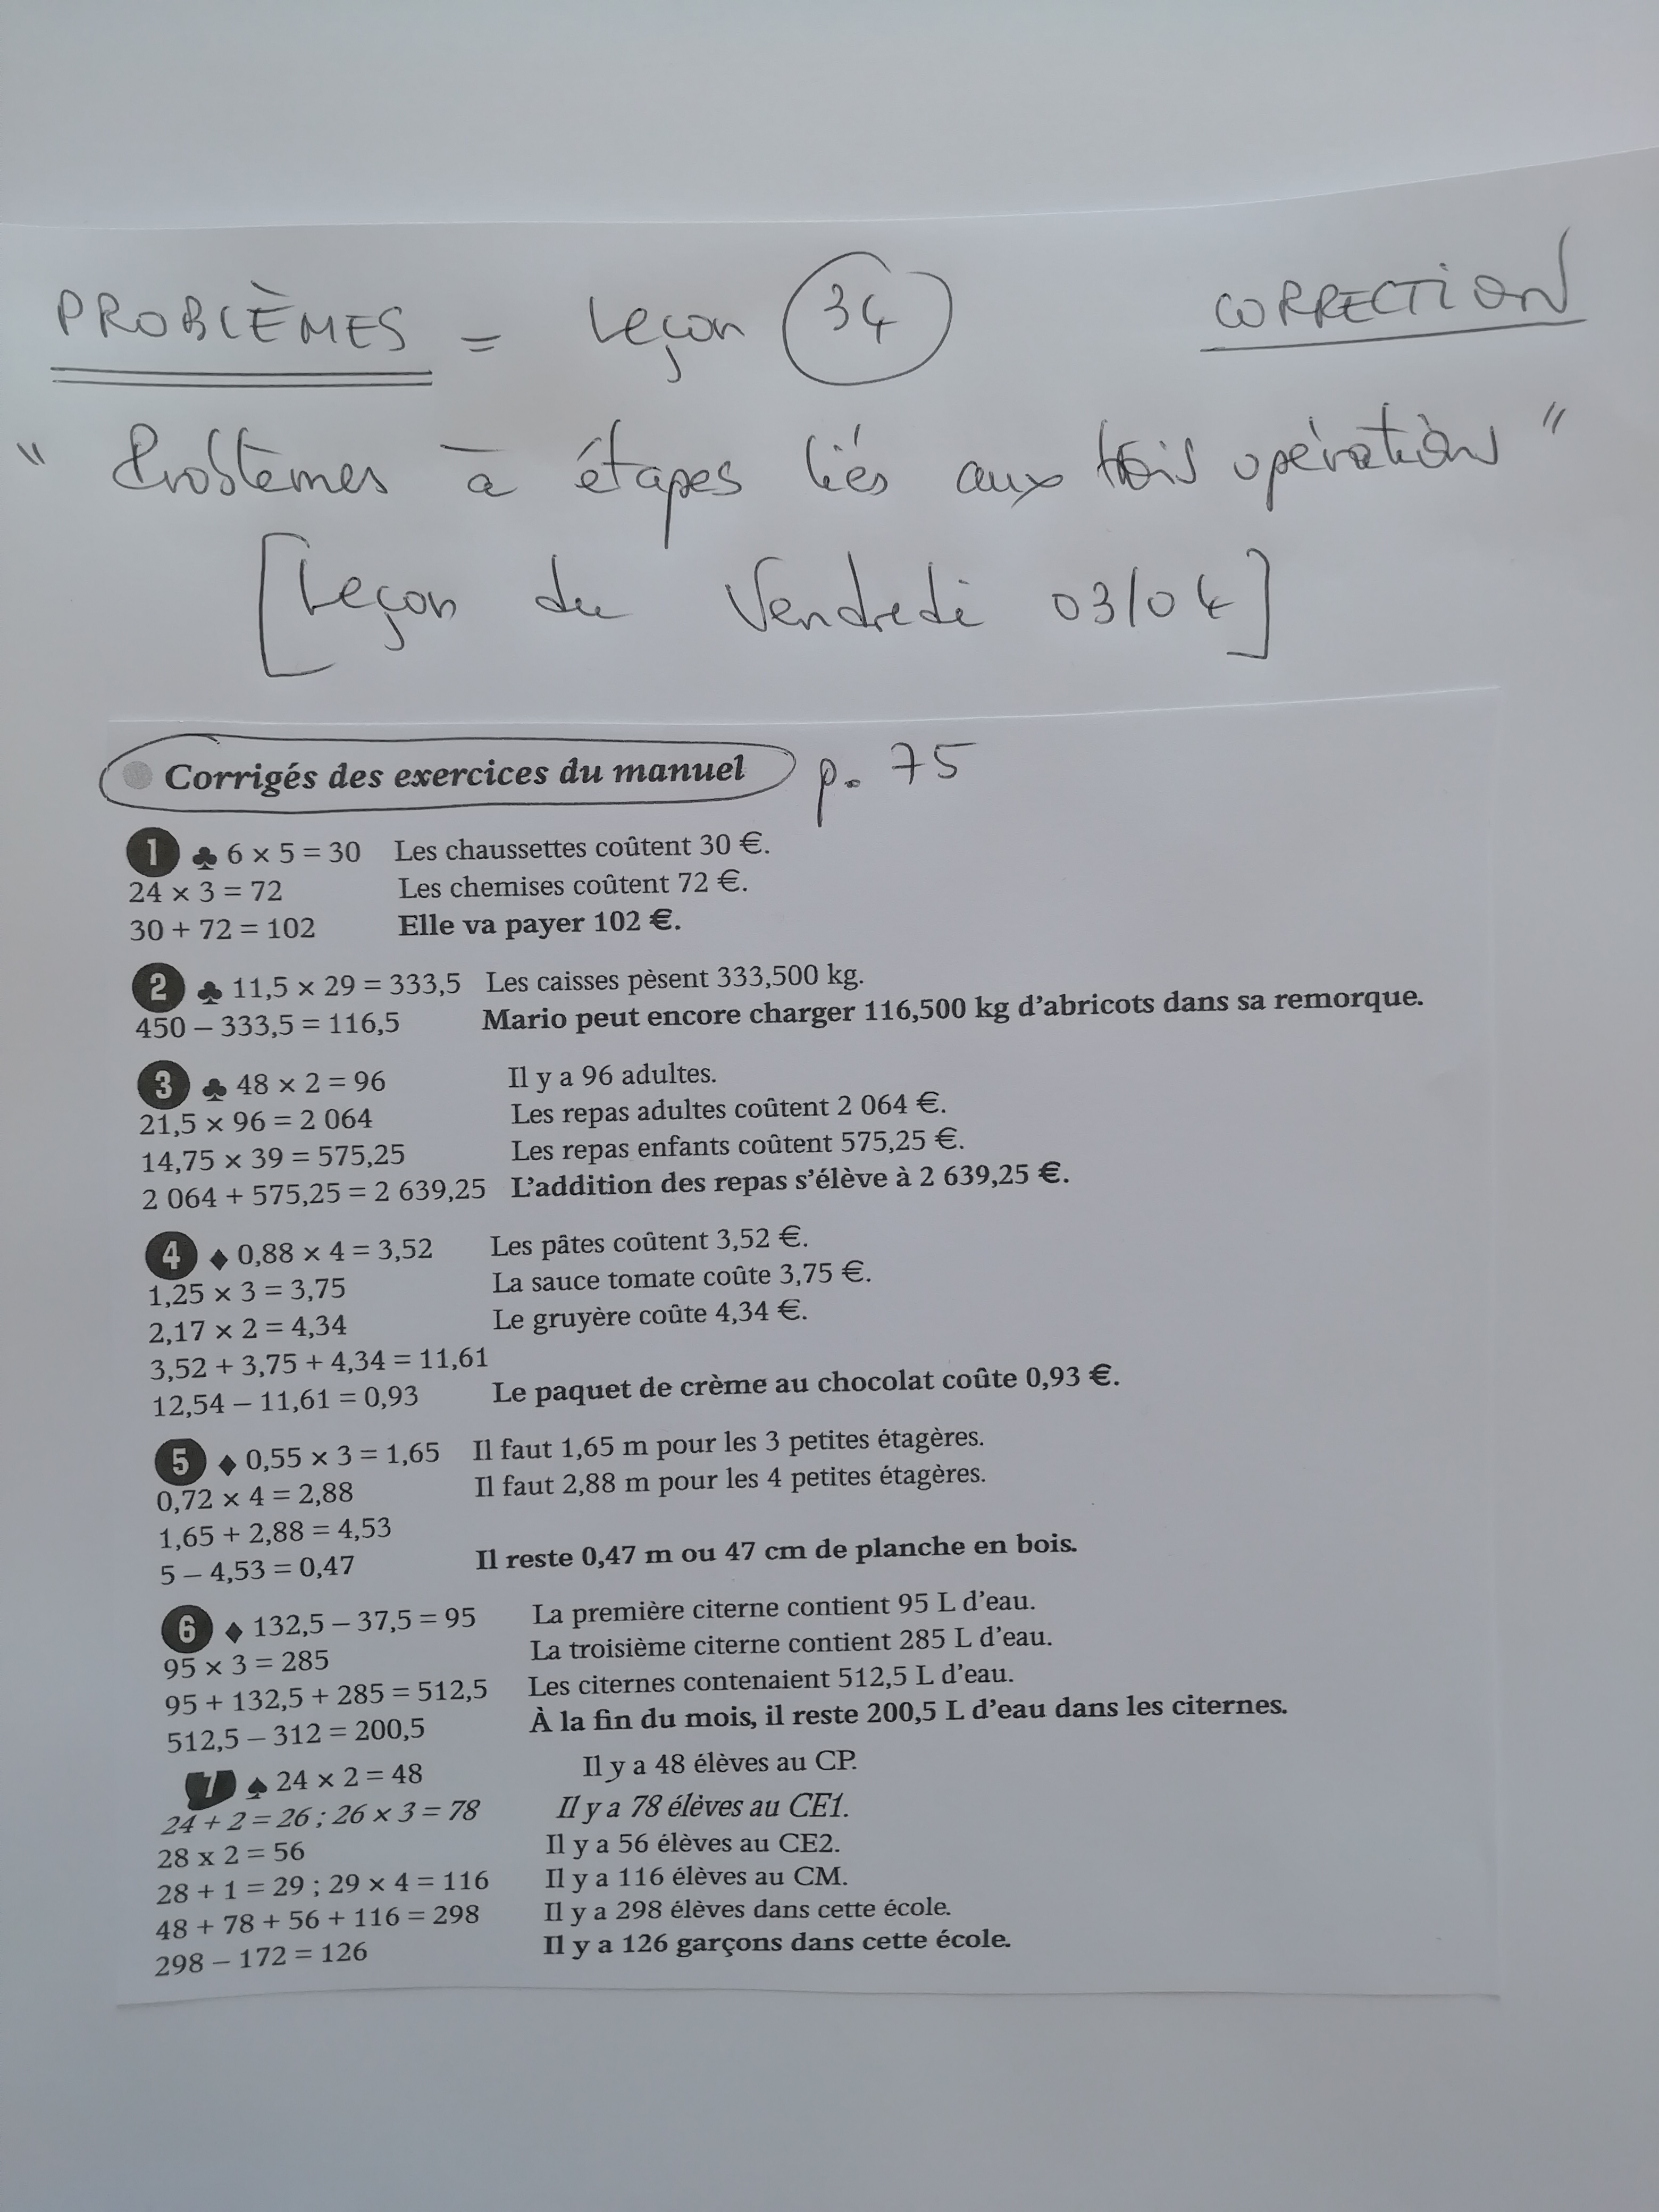 PROBLÈMES = Leçon 34 CORRECTION
" Problèmes à étapes liés aux trois opérations "
[Leçon du Vendredi 03/04]
Corrigés des exercices du manuel p. 75
1 ♣ 6 × 5 = 30 Les chaussettes coûtent 30 €.
24 × 3 = 72 Les chemises coûtent 72 €.
30 + 72 = 102 Elle va payer 102 €.
2 ♣ 11,5 × 29 = 333,5 Les caisses pèsent 333,500 kg.
450 – 333,5 = 116,5 Mario peut encore charger 116,500 kg d'abricots dans sa remorque.
3 ♣ 48 × 2 = 96 Il y a 96 adultes.
21,5 × 96 = 2 064 Les repas adultes coûtent 2 064 €.
14,75 × 39 = 575,25 Les repas enfants coûtent 575,25 €.
2 064 + 575,25 = 2 639,25 L'addition des repas s'élève à 2 639,25 €.
4 ♦ 0,88 × 4 = 3,52 Les pâtes coûtent 3,52 €.
1,25 × 3 = 3,75 La sauce tomate coûte 3,75 €.
2,17 × 2 = 4,34 Le gruyère coûte 4,34 €.
3,52 + 3,75 + 4,34 = 11,61
12,54 – 11,61 = 0,93 Le paquet de crème au chocolat coûte 0,93 €.
5 ♦ 0,55 × 3 = 1,65 Il faut 1,65 m pour les 3 petites étagères.
0,72 × 4 = 2,88 Il faut 2,88 m pour les 4 petites étagères.
1,65 + 2,88 = 4,53
5 – 4,53 = 0,47 Il reste 0,47 m ou 47 cm de planche en bois.
6 ♦ 132,5 – 37,5 = 95 La première citerne contient 95 L d'eau.
95 × 3 = 285 La troisième citerne contient 285 L d'eau.
95 + 132,5 + 285 = 512,5 Les citernes contenaient 512,5 L d'eau.
512,5 – 312 = 200,5 À la fin du mois, il reste 200,5 L d'eau dans les citernes.
7 ♠ 24 × 2 = 48 Il y a 48 élèves au CP.
24 + 2 = 26 ; 26 × 3 = 78 Il y a 78 élèves au CE1.
28 x 2 = 56 Il y a 56 élèves au CE2.
28 + 1 = 29 ; 29 × 4 = 116 Il y a 116 élèves au CM.
48 + 78 + 56 + 116 = 298 Il y a 298 élèves dans cette école.
298 – 172 = 126 Il y a 126 garçons dans cette école.